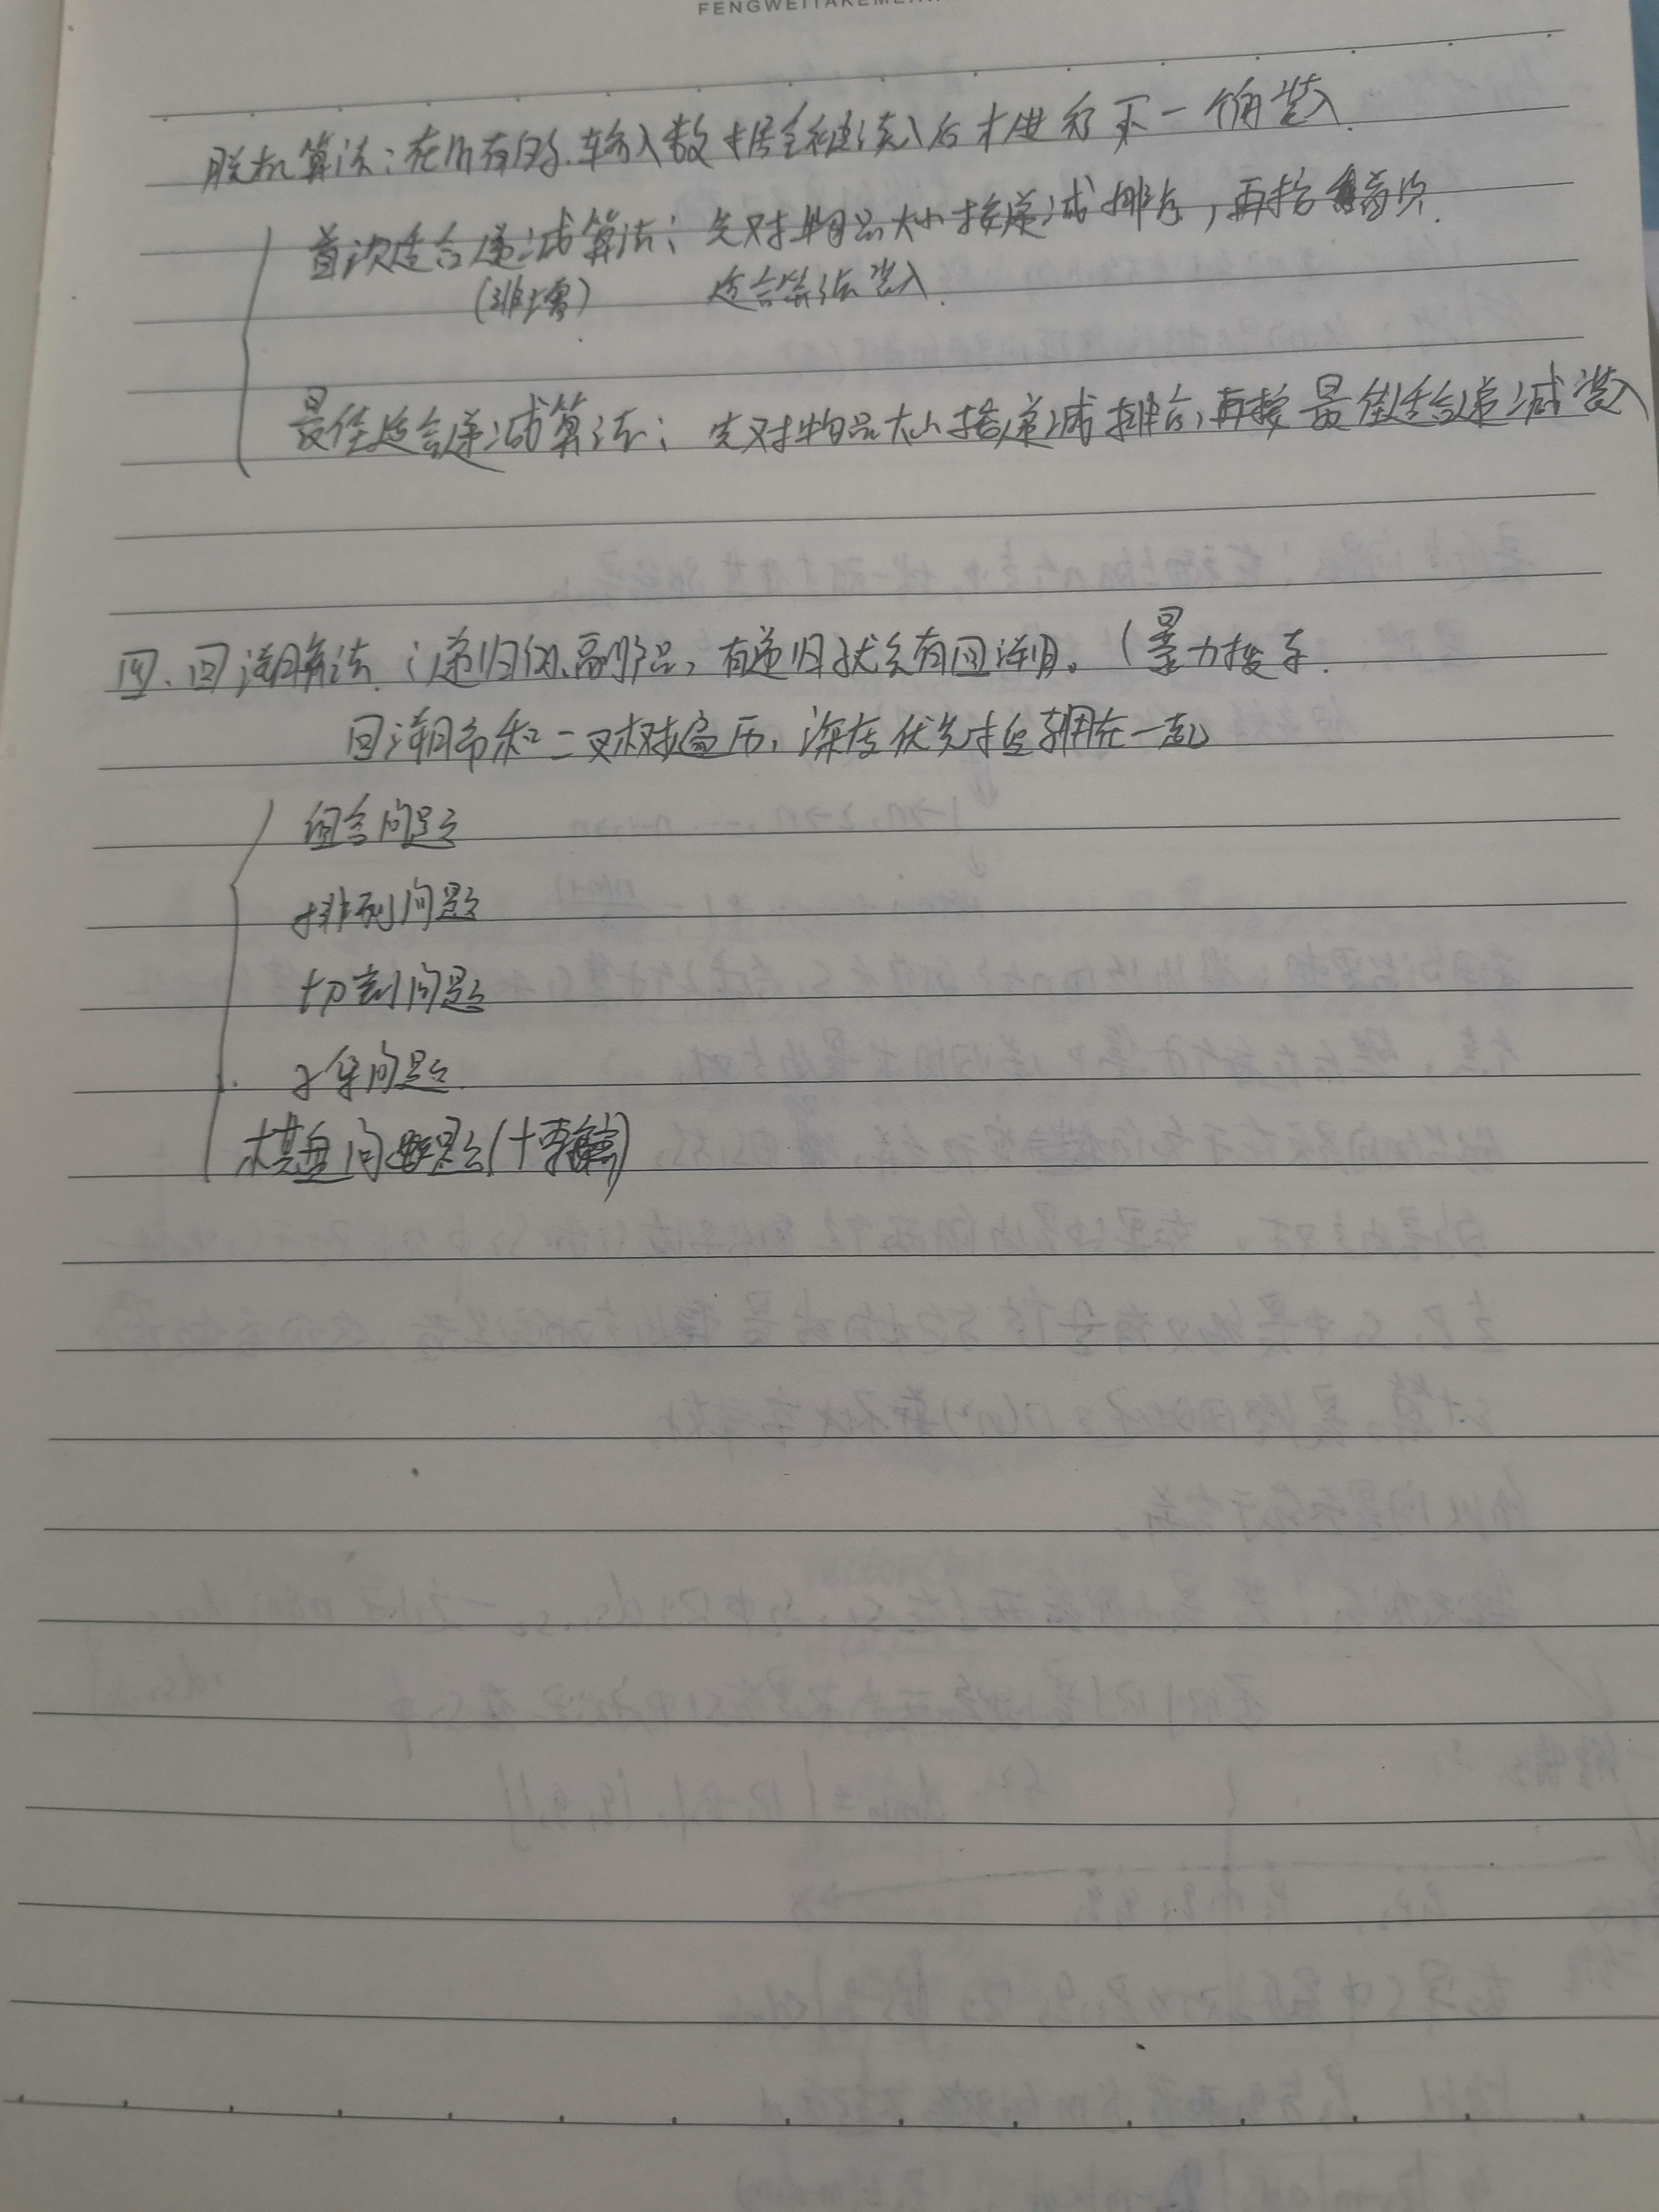 FENGWEI
脱机算法:在所有的输入数据全都读入后才进行下一个的装入.
首次适合递减算法:先对物品大小按递减排序,再按首次
(非增) 适合算法装入.
最佳适合递减算法:先对物品大小按递减排序,再按最佳适合递减装入
四、回溯算法:递归的副产品,有递归就会有回溯。(暴力搜索.
回溯常和二叉树遍历,深度优先搜索用在一起
组合问题
排列问题
切割问题
子集问题
棋盘问题(